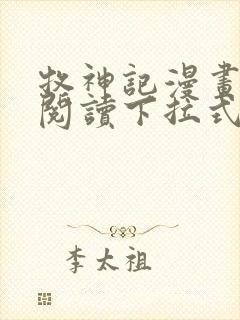 牧神記漫畫
閱讀下拉式
李太祖